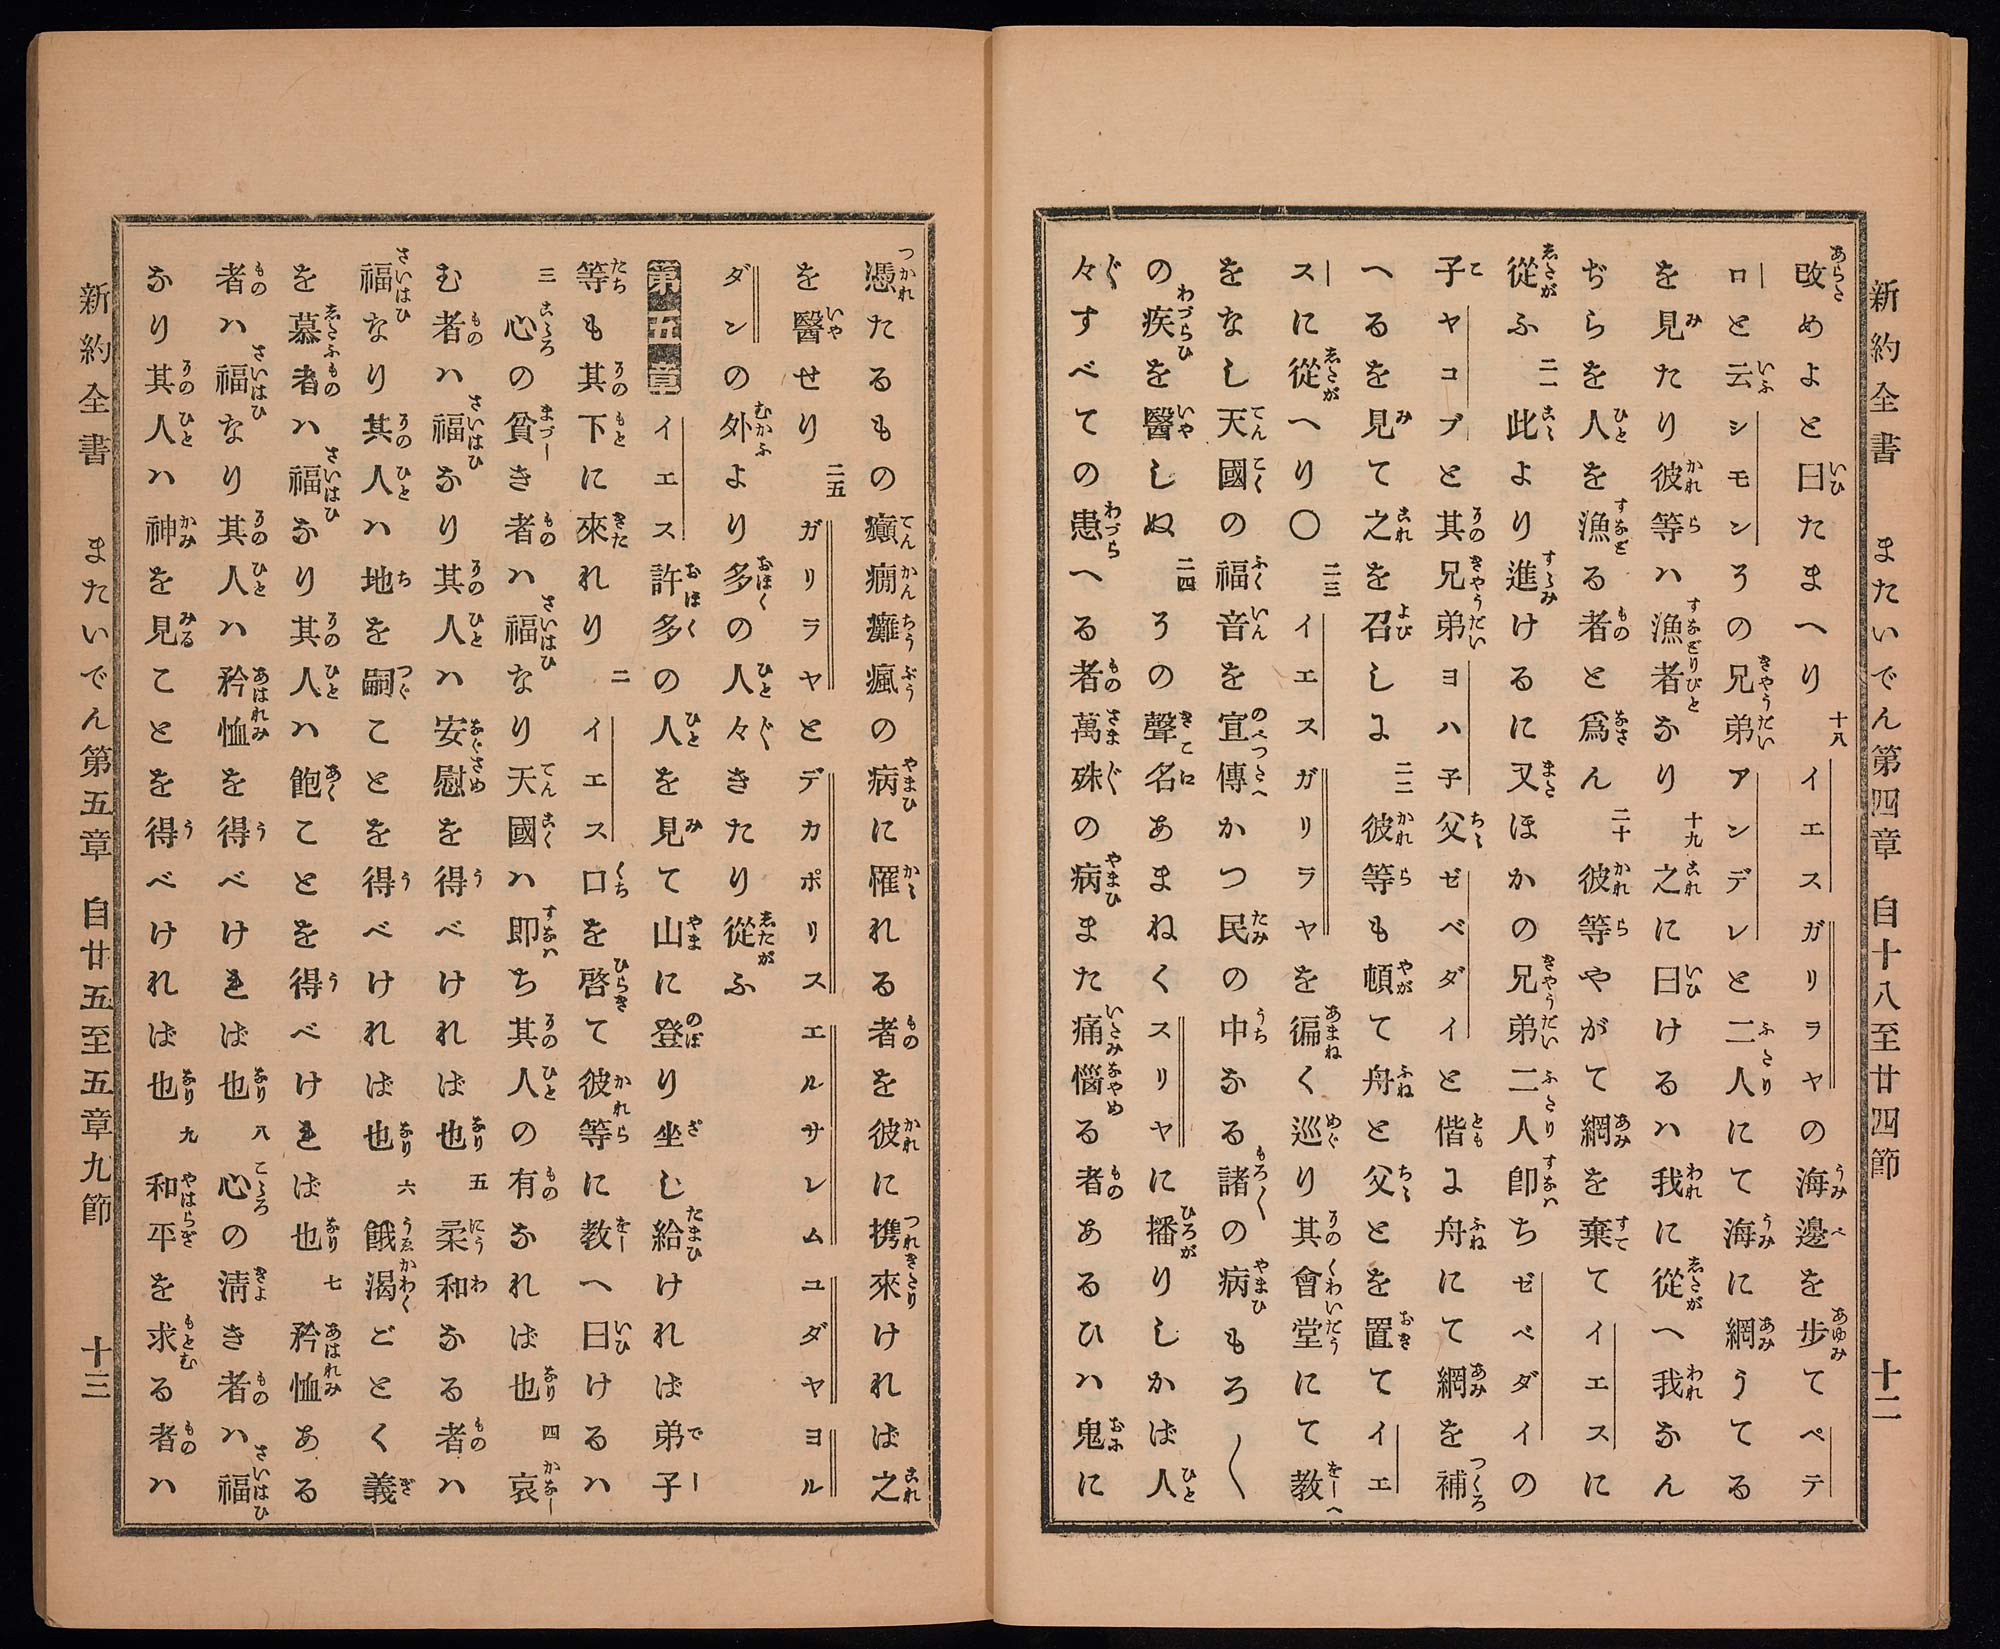 新約全書　またいでん第四章　自十八至廿四節　十二
改めよと曰たまへり十八イエスガリラヤの海邊を歩てペテ
ロと云シモンその兄弟アンデレと二人にて海に網うてる
を見たり彼等ハ漁者なり十九之に曰けるハ我に從へ我なん
ぢらを人を漁る者と爲ん二十彼等やがて網を棄てイエスに
從ふ二一此より進けるに又ほかの兄弟二人即ちゼベダイの
子ヤコブと其兄弟ヨハ子父ゼベダイと偕に舟にて網を補
へるを見て之を召しに二二彼等も頓て舟と父とを置てイエ
スに從へり〇二三イエスガリラヤを徧く巡り其會堂にて教
をなし天國の福音を宣傳かつ民の中なる諸の病もろ〱
の疾を醫しぬ二四その聲名あまねくスリヤに播りしかば人
々すべての患へる者萬殊の病また痛惱る者あるひハ鬼に
憑たるもの癲癇癱瘋の病に罹れる者を彼に携來ければ之
を醫せり二五ガリラヤとデカポリスエルサレムユダヤヨル
ダンの外より多の人々きたり從ふ
第五章イエス許多の人を見て山に登り坐し給ければ弟子
等も其下に來れり二イエス口を啓て彼等に教へ曰けるハ
三心の貧き者ハ福なり天國ハ即ち其人の有なれば也四哀
む者ハ福なり其人ハ安慰を得べければ也五柔和なる者ハ
福なり其人ハ地を嗣ことを得べければ也六餓渴ごとく義
を慕者ハ福なり其人ハ飽ことを得べければ也七矜恤ある
者ハ福なり其人ハ矜恤を得べければ也八心の淸き者ハ福
なり其人ハ神を見ことを得べければ也九和平を求る者ハ
新約全書　またいでん第五章　自廿五至五章九節　十三